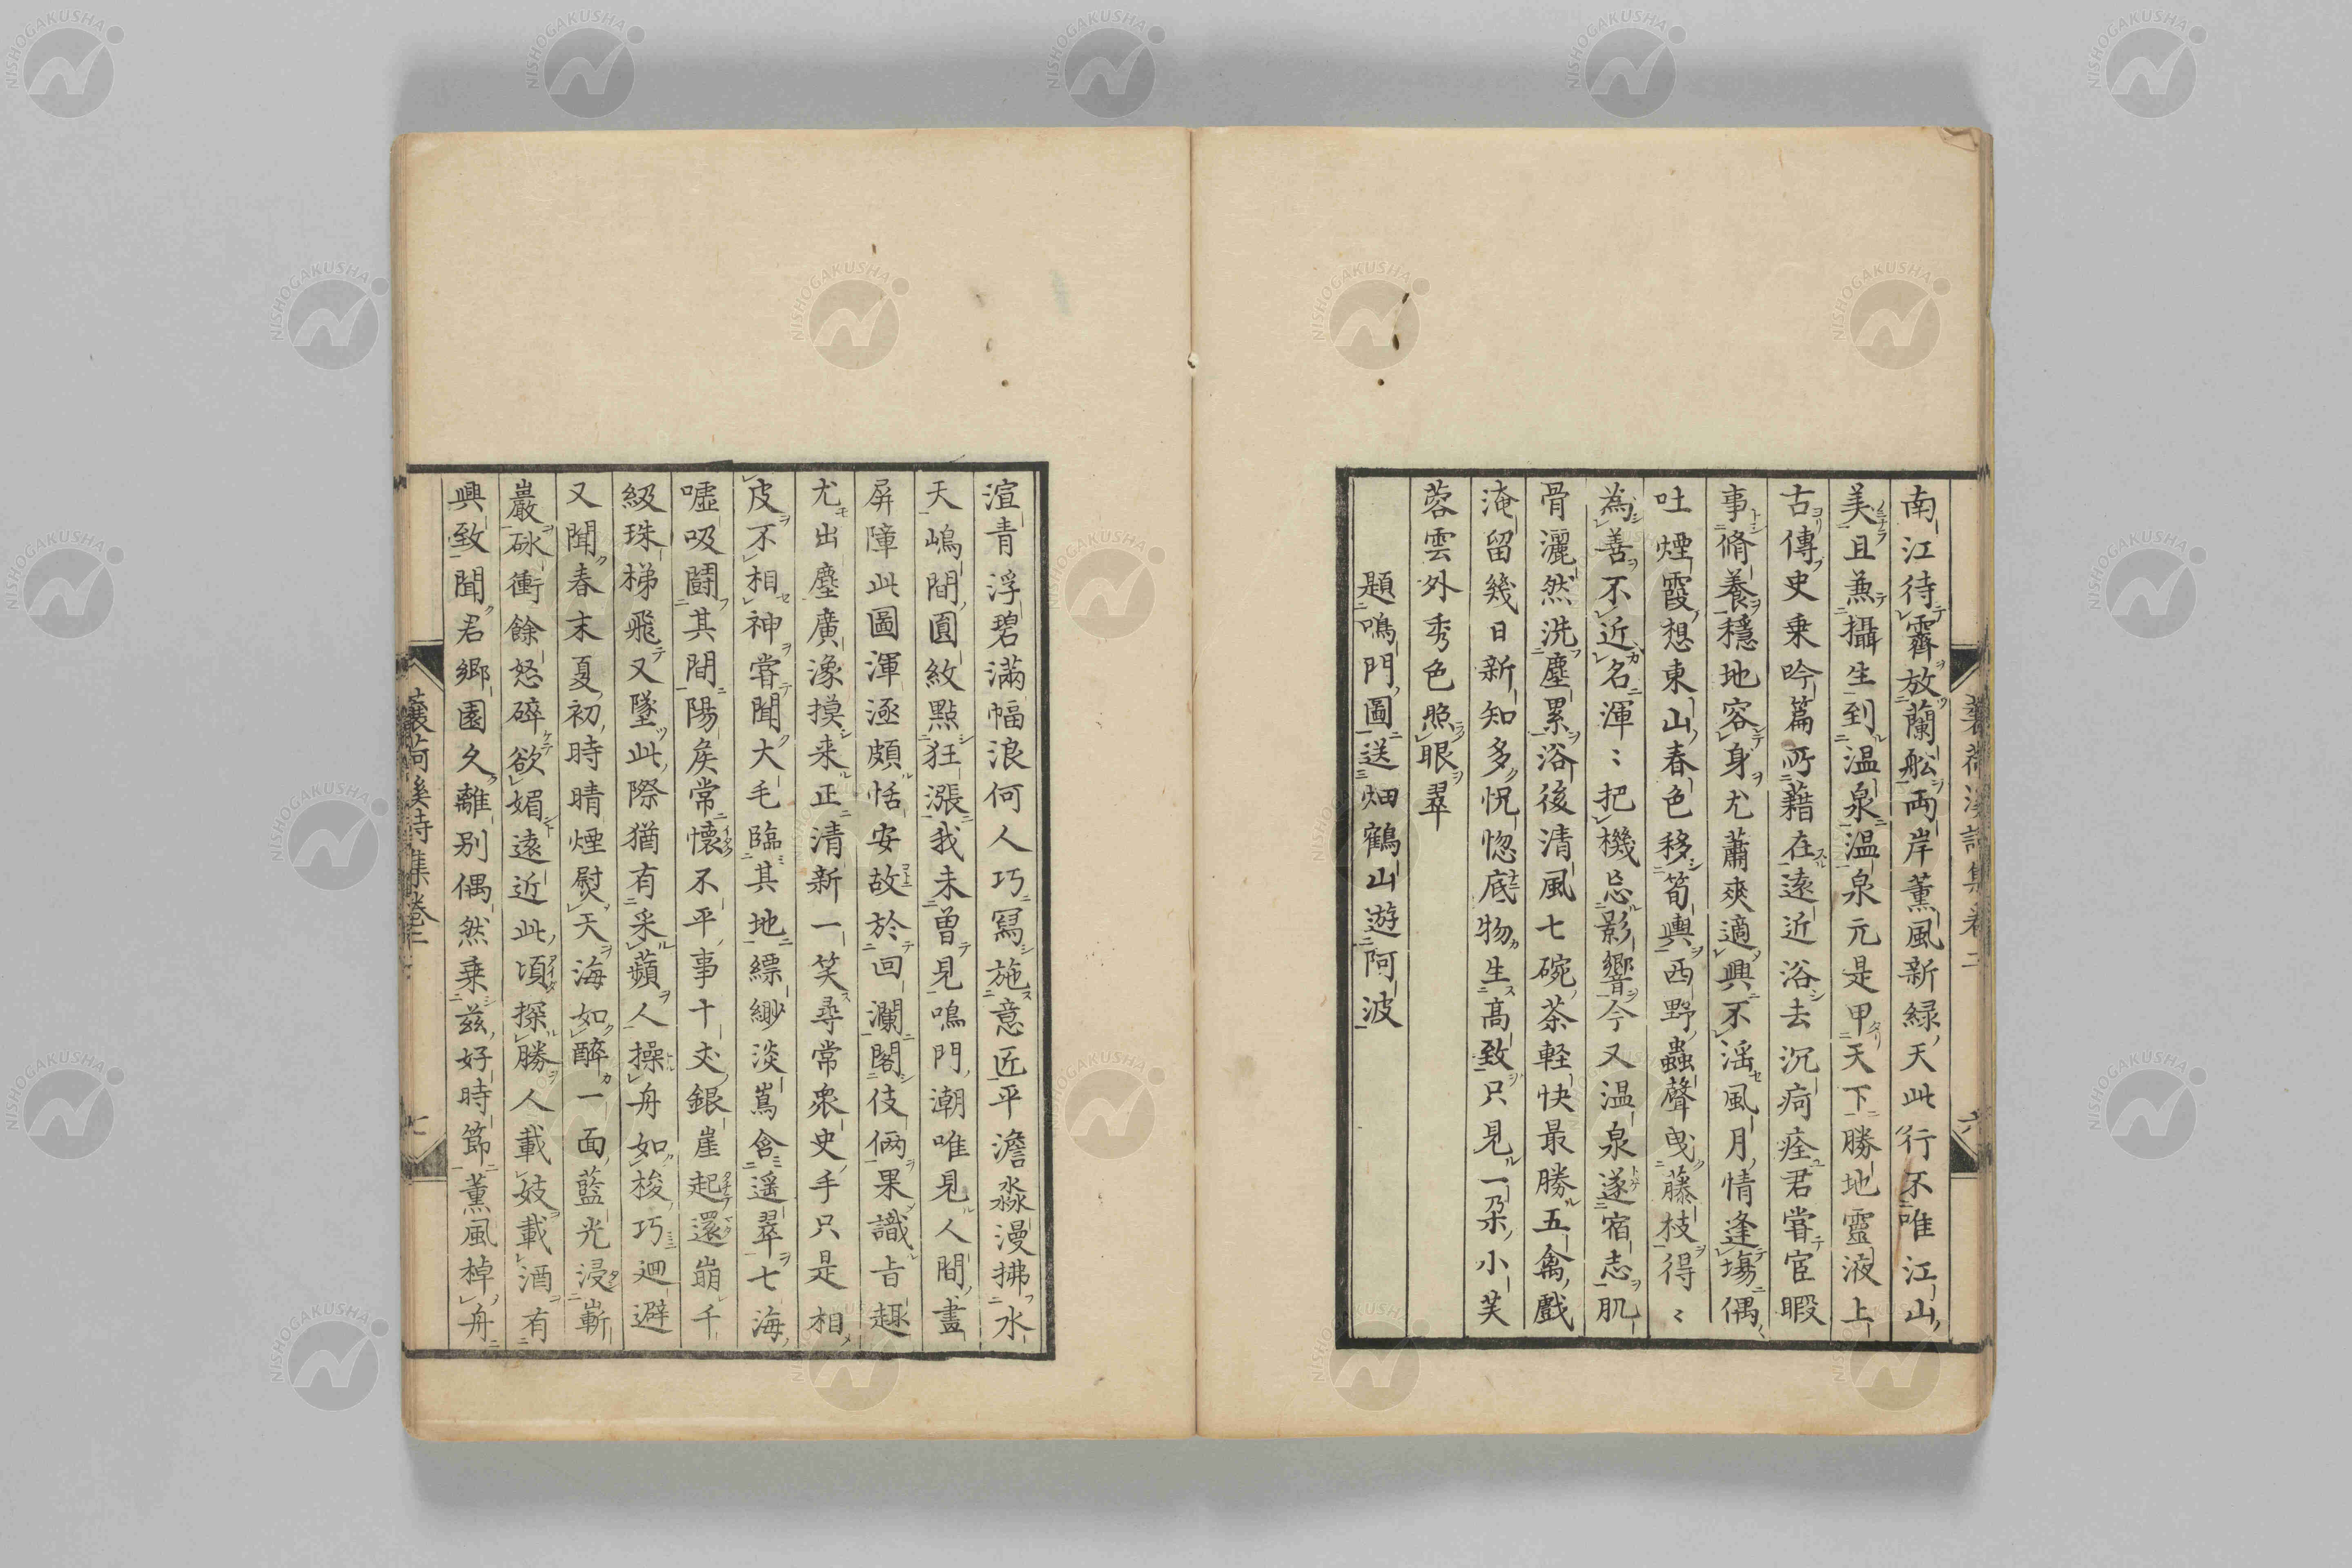 南江待霽放蘭舩両岸薫風新緑天此行不唯江山
美且兼攝生到温泉温泉元是甲天下勝地靈液上
古傳史乗吟篇所藉在遠近浴去沉痾痊君嘗宦暇
事脩養穏地容身尤蕭爽適興不淫風月情逢塲偶
吐煙霞想東山春色移筍輿西野蟲聲曳藤枝得〻
為善不近名渾〻把機忌影響今又温泉遂宿志肌
骨灑然洗塵累浴後清風七碗茶軽快最勝五禽戲
淹留幾日新知多怳惚底物生高致只見一朶小芙
蓉雲外秀色照眼翠
題鳴門圖送畑鶴山遊阿波
渲青浮碧滿幅浪何人巧寫施意匠平澹淼漫拂水
天嶋間圓紋點狂漲我未曽見鳴門潮唯見人間畫
屏障此圖渾逐頗恬安故於回瀾閣伎倆果識㫖趣
尤出塵廣濠摸来正清新一笑尋常衆史手只是相
皮不相神嘗聞大毛臨其地縹緲淡蔦含遥翠七海
噓吸鬪其間陽矦常懐不平事十丈銀崖起還崩千
級珠梯飛又墜此際猶有采蘋人操舟如梭巧廻避
又聞春末夏初時晴煙熨天海如醉一面藍光浸嶄
巖砯衝餘怒碎欲媚遠近此頃探勝人載妓載酒有
興致聞君郷園久離別偶然乗茲好時節薫風棹舟
蘘荷溪詩集卷二
六
蘘荷溪詩集卷二
七
NISHOGAKUSHA